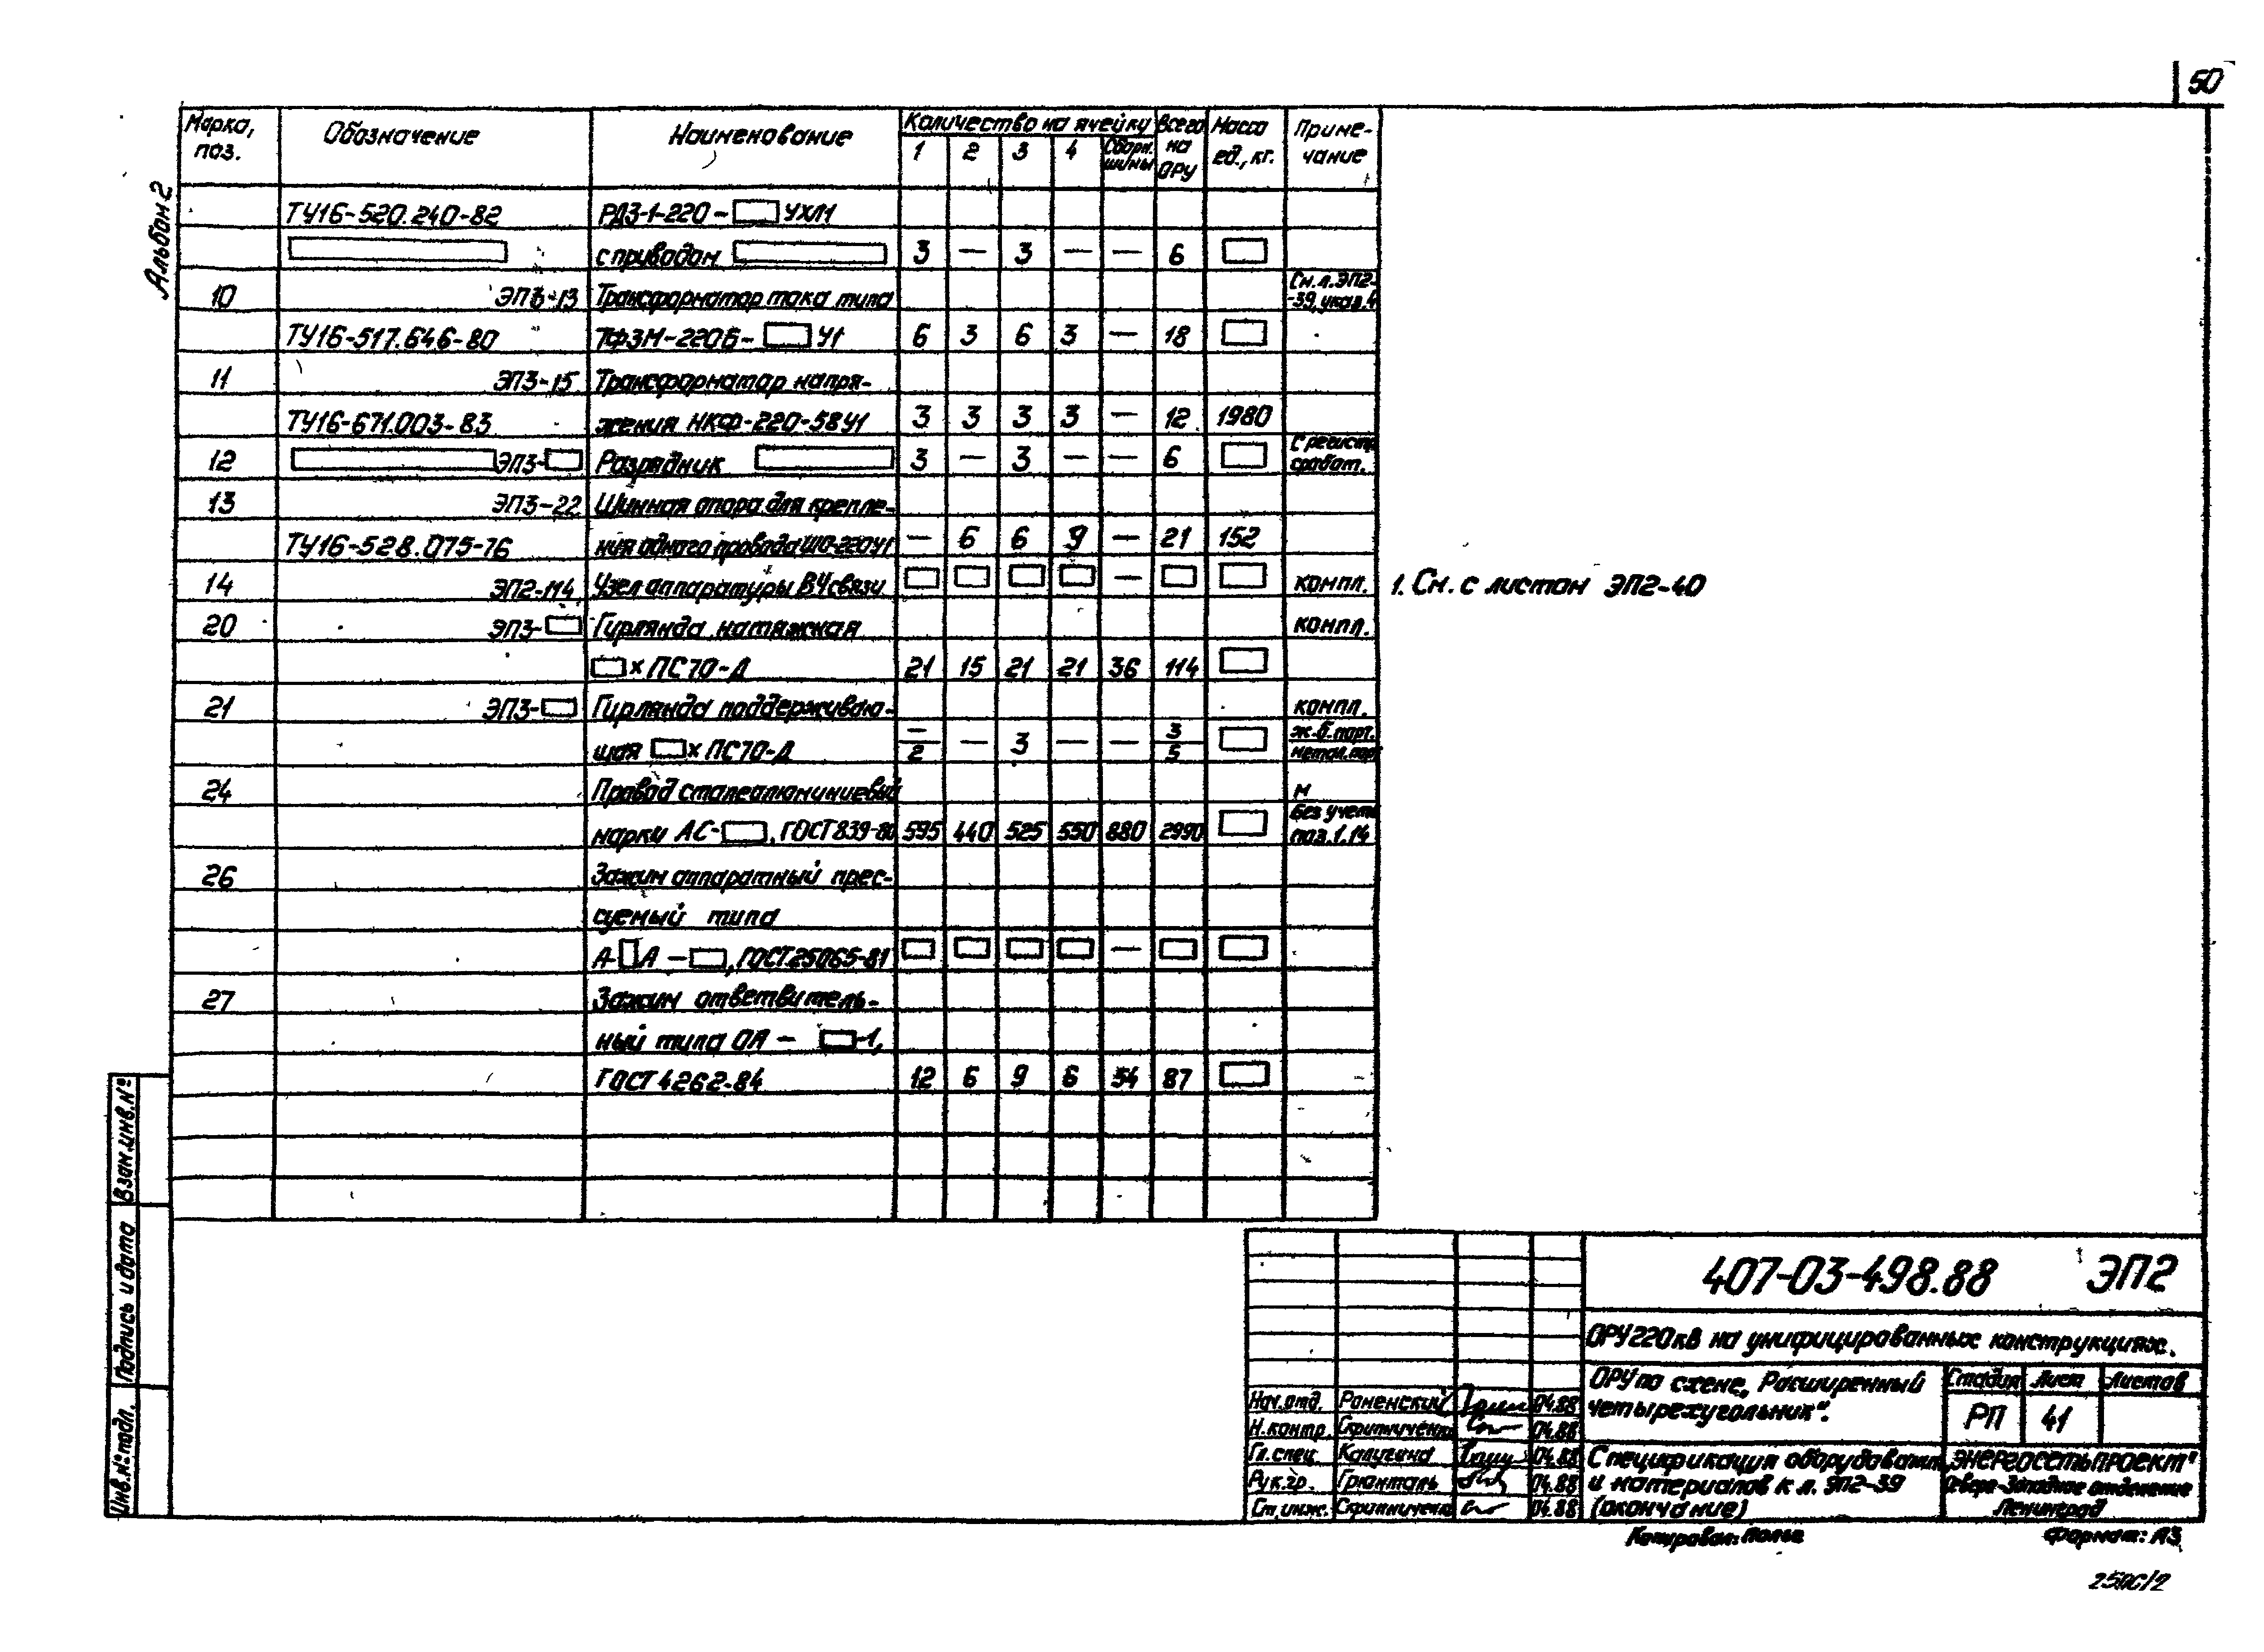 50
Альбом 2
Марка, поз. Обозначение Наименование Количество на ячейку Всего на ОРУ Масса ед., кг. Приме-чание
1 2 3 4 Сборн. шины
ТУ16-520.240-82 РДЗ-1-220- УХЛ1
с приводом 3 — 3 — — 6
10 ЭП3-13 Трансформатор тока типа См.л.ЭП2--39, указ.4
ТУ16-517.646-80 ТФЗМ-220Б- У1 6 3 6 3 — 18
11 ЭП3-15 Трансформатор напря-
ТУ16-671.003-83 жения НКФ-220-58У1 3 3 3 3 — 12 1980
12 ЭП3- Разрядник 3 — 3 — — 6 С регистр. сработ.
13 ЭП3-22 Шинная опора для крепле-
ТУ16-528.075-76 ния одного провода ШО-220У1 — 6 6 9 — 21 152
14 ЭП2-114 Узел аппаратуры ВЧ связи — компл.
1. См. с листом ЭП2-40
20 ЭП3- Гирлянда натяжная компл.
×ПС70-Д 21 15 21 21 36 114
21 ЭП3- Гирлянда поддерживаю- компл.
щая ×ПС70-Д —/2 — 3 — — 3/5 ж.б.порт. метал.порт
24 Провод сталеалюминиевый м
марки АС- , ГОСТ 839-80 595 440 525 550 880 2990 Без учета поз.1.14
26 Зажим аппаратный прес-
суемый типа
А- А — , ГОСТ.25065-81 —
27 Зажим ответвитель-
ный типа ОА — -1,
ГОСТ 4262-84 12 6 9 6 54 87
Взам.инв.№
Подпись и дата
Инв.№ подл.
407-03-498.88 ЭП2
ОРУ 220кВ на унифицированных конструкциях.
ОРУ по схеме „Расширенный четырехугольник".
Стадия Лист Листов
РП 41
Нач.отд. Роменский 04.88
Н.контр. 04.88
Гл.спец. Калугина 04.88
Рук.гр. Грюнталь 04.88
Ст.инж. 04.88
Спецификация оборудования и материалов к л. ЭП2-39 (окончание)
„ЭНЕРГОСЕТЬПРОЕКТ"
Северо-Западное отделение
Ленинград
Копировал: Формат: А3